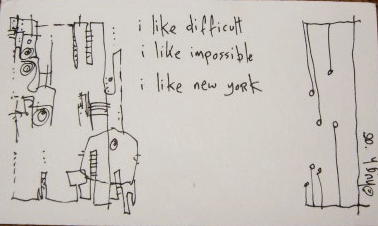 i like difficult
i like impossible
i like new york
@hugh.